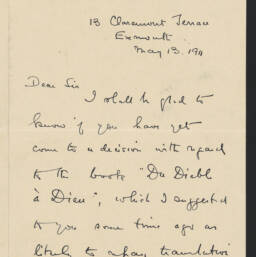 13 Claremont Terrace
Exmouth.
May 13. 191
Dear Sir
I shall be glad to
know if you have yet
come to a decision with regard
to the book "Du Diable
à Dieu", which I suggested
to you some time ago as
likely to repay translation